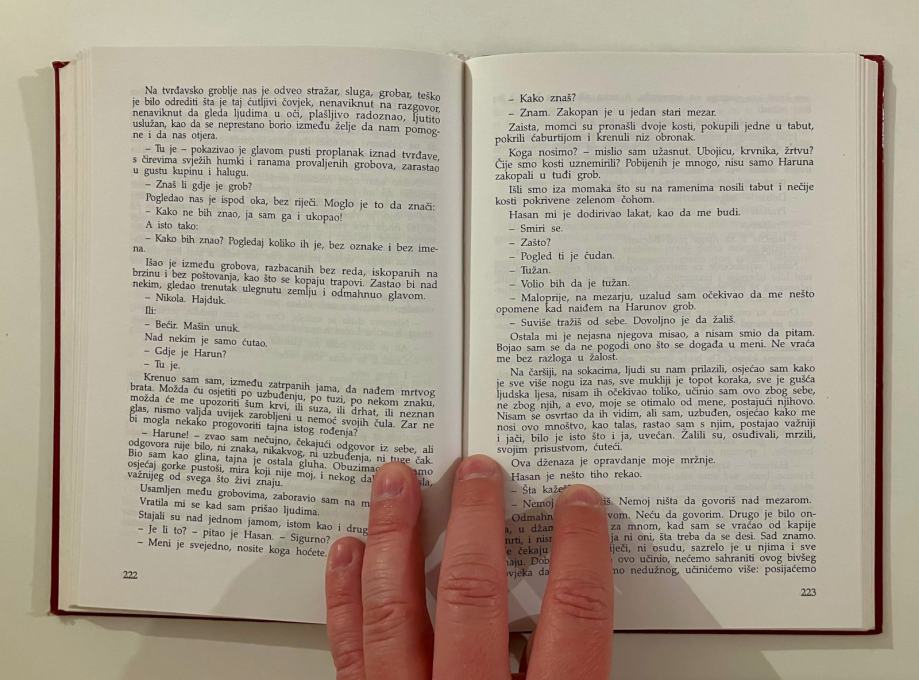 Na tvrđavsko groblje nas je odveo stražar, sluga, grobar, teško
je bilo odrediti šta je taj ćutljivi čovjek, nenaviknut na razgovor,
nenaviknut da gleda ljudima u oči, plašljivo radoznao, ljutito
uslužan, kao da se neprestano borio između želje da nam pomog-
ne i da nas otjera.
– Tu je – pokazivao je glavom pusti proplanak iznad tvrđave,
s čirevima svježih humki i ranama provaljenih grobova, zarastao
u gustu kupinu i halugu.
– Znaš li gdje je grob?
Pogledao nas je ispod oka, bez riječi. Moglo je to da znači:
– Kako ne bih znao, ja sam ga i ukopao!
A isto tako:
– Kako bih znao? Pogledaj koliko ih je, bez oznake i bez ime-
na.
Išao je između grobova, razbacanih bez reda, iskopanih na
brzinu i bez poštovanja, kao što se kopaju trapovi. Zastao bi nad
nekim, gledao trenutak ulegnutu zemlju i odmahnuo glavom.
– Nikola. Hajduk.
Ili:
– Bećir. Mašin unuk.
Nad nekim je samo ćutao.
– Gdje je Harun?
– Tu je.
Krenuo sam sam, između zatrpanih jama, da nađem mrtvog
brata. Možda ću osjetiti po uzbuđenju, po tuzi, po nekom znaku,
možda će me upozoriti šum krvi, ili suza, ili drhat, ili neznan
glas, nismo valjda uvijek zarobljeni u nemoć svojih čula. Zar ne
bi mogla nekako progovoriti tajna istog rođenja?
– Harune! – zvao sam nečujno, čekajući odgovor iz sebe, ali
odgovora nije bilo, ni znaka, nikakvog, ni uzbuđenja, ni tuge čak.
Bio sam kao glina, tajna je ostala gluha.
osjećaj gorke pustoši, mira koji nije moj, i nekog
važnijeg od svega što živi znaju.
Usamljen među grobovima, zaboravio sam na
Vratila mi se kad sam prišao ljudima.
Stajali su nad jednom jamom, istom kao i
– Je li to? – pitao je Hasan. – Sigurno?
– Meni je svejedno, nosite koga hoćete.
222
– Kako znaš?
– Znam. Zakopan je u jedan stari mezar.
Zaista, momci su pronašli dvoje kosti, pokupili jedne u tabut,
pokrili ćaburtijom i krenuli niz obronak.
Koga nosimo? – mislio sam užasnut. Ubojicu, krvnika, žrtvu?
Čije smo kosti uznemirili? Pobijenih je mnogo, nisu samo Haruna
zakopali u tuđi grob.
Išli smo iza momaka što su na ramenima nosili tabut i nečije
kosti pokrivene zelenom čohom.
Hasan mi je dodirivao lakat, kao da me budi.
– Smiri se.
– Zašto?
– Pogled ti je čudan.
– Tužan.
– Volio bih da je tužan.
– Maloprije, na mezarju, uzalud sam očekivao da me nešto
opomene kad naiđem na Harunov grob.
– Suviše tražiš od sebe. Dovoljno je da žališ.
Ostala mi je nejasna njegova misao, a nisam smio da pitam.
Bojao sam se da ne pogodi ono što se događa u meni. Ne vraća
me bez razloga u žalost.
Na čaršiji, na sokacima, ljudi su nam prilazili, osjećao sam kako
je sve više nogu iza nas, sve mukliji je topot koraka, sve je gušća
ljudska ljesa, nisam ih očekivao toliko, učinio sam ovo zbog sebe,
ne zbog njih, a evo, moje se otimalo od mene, postajući njihovo.
Nisam se osvrtao da ih vidim, ali sam, uzbuđen, osjećao kako me
nosi ovo mnoštvo, kao talas, rastao sam s njim, postajao važniji
i jači, bilo je isto što i ja, uvećan. Žalili su, osuđivali, mrzili,
svojim prisustvom, ćuteći.
Ova dženaza je opravdanje moje mržnje.
Hasan je nešto tiho rekao.
– Šta
– Nemoj Nemoj ništa da govoriš nad mezarom.
Neću da govorim. Drugo je bilo on-
da, u za mnom, kad sam se vraćao od kapije
ni oni, šta treba da se desi. Sad znamo.
čekaju ni osudu, sazrelo je u njima i sve
ovo učinio, nećemo sahraniti ovog bivšeg
nedužnog, učinićemo više: posijaćemo
223